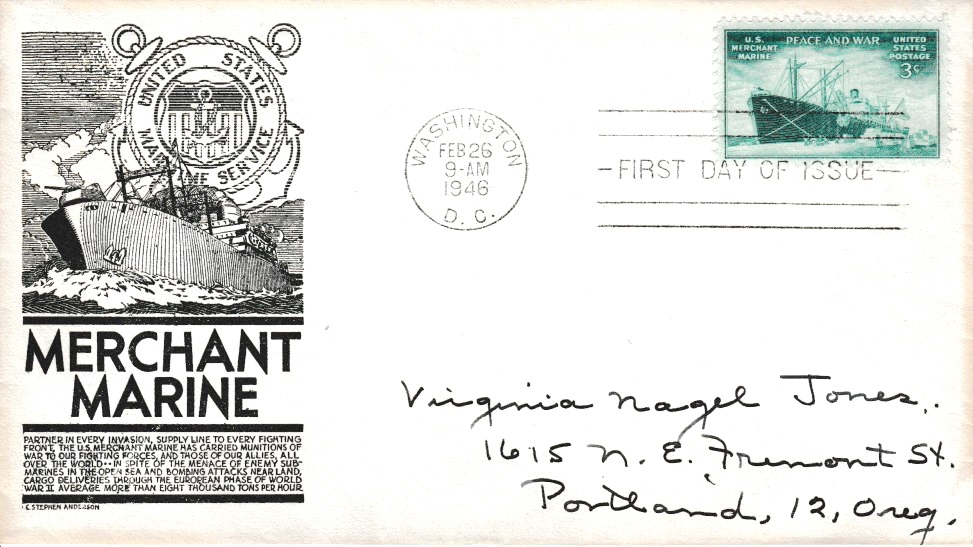 UNITED STATES
MARITIME SERVICE
MERCHANT
MARINE
PARTNER IN EVERY INVASION, SUPPLY LINE TO EVERY FIGHTING
FRONT, THE U.S. MERCHANT MARINE HAS CARRIED MUNITIONS OF
WAR TO OUR FIGHTING FORCES, AND THOSE OF OUR ALLIES, ALL
OVER THE WORLD--IN SPITE OF THE MENACE OF ENEMY SUB-
MARINES IN THE OPEN SEA AND BOMBING ATTACKS NEAR LAND,
CARGO DELIVERIES THROUGH THE EUROPEAN PHASE OF WORLD
WAR II AVERAGE MORE THAN EIGHT THOUSAND TONS PER HOUR
C. STEPHEN ANDERSON
WASHINGTON
FEB 26
9-AM
1946
D. C.
U.S. MERCHANT MARINE
PEACE AND WAR
UNITED STATES POSTAGE
3¢
FIRST DAY OF ISSUE
Virginia Nagel Jones,.
1615 N. E. Fremont St.
Portland, 12, Oreg.